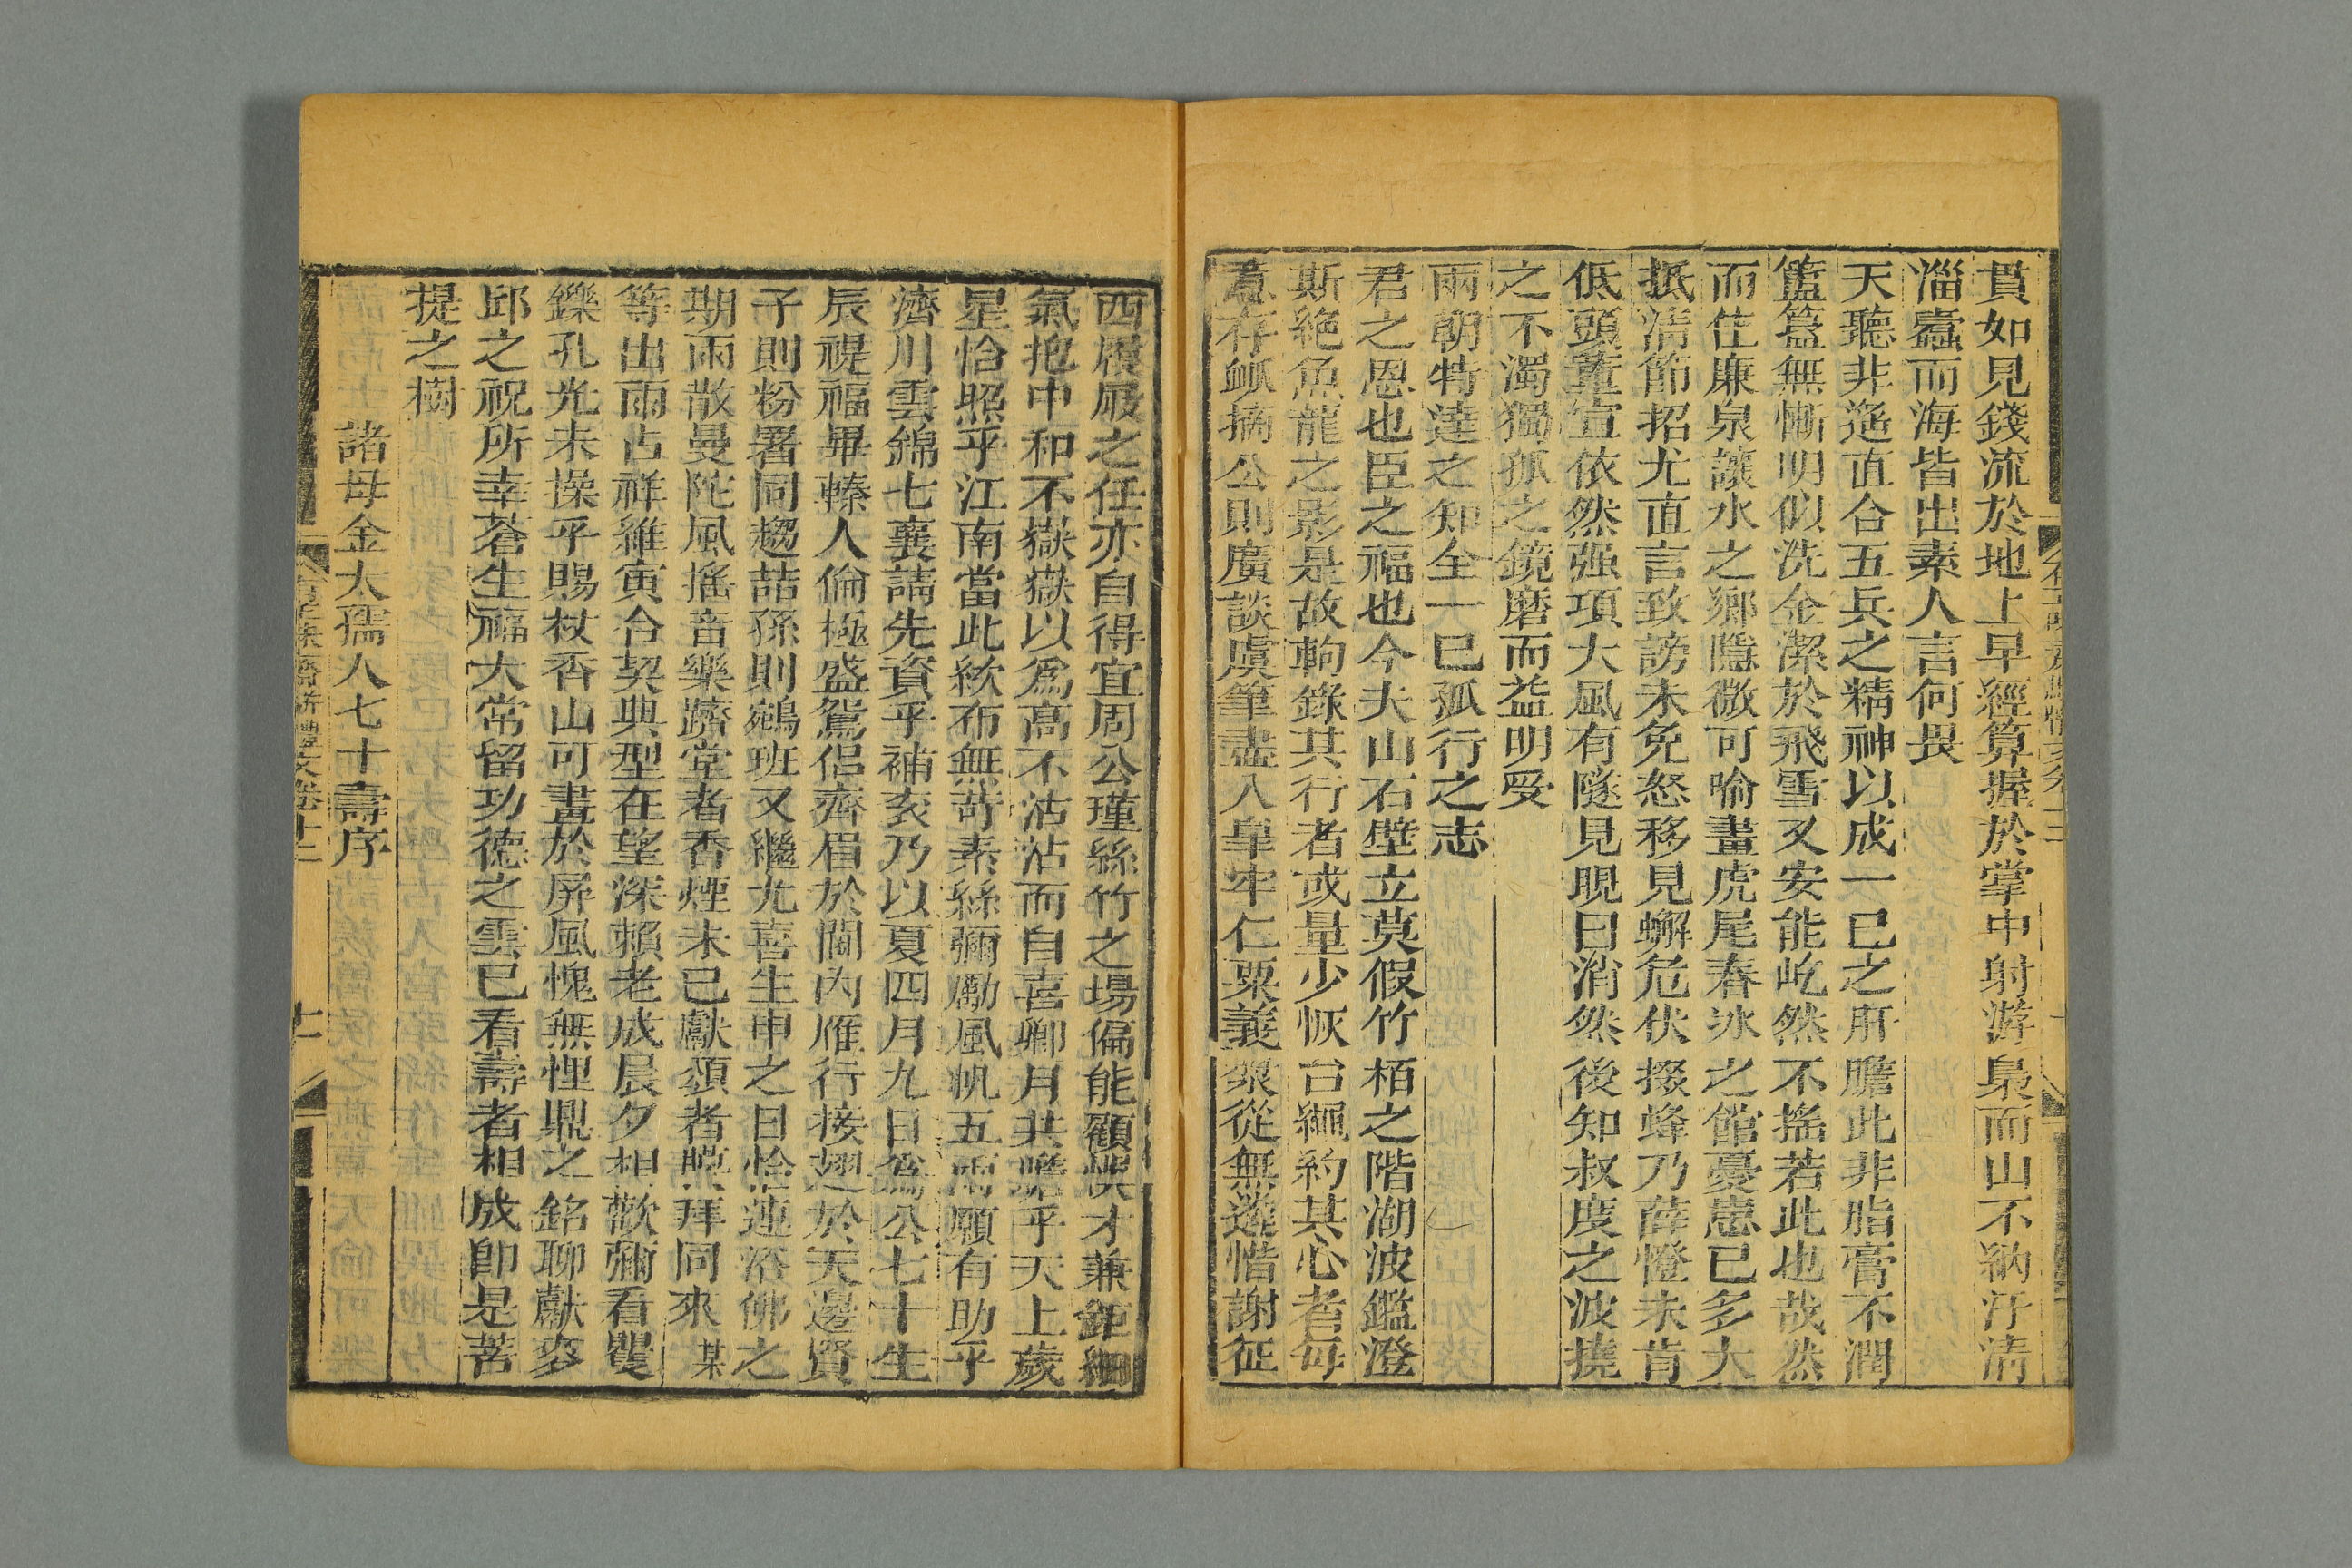 貫如見錢流於地上早經算握於掌中射游梟而山不納汙清
淄蠹而海皆出素人言何畏
天聽非遙直合五兵之精神以成一已之肝膽此非脂膏不潤
簠簋無慚明似洗金潔於飛雪又安能屹然不搖若此也哉然
而住廉泉讓水之鄉隱微可喻畫虎尾春冰之館憂患已多大
抵清節招尤直言致謗未免怒移見蠏危伏掇蜂乃薛憕未肯
低頭董宣依然强項大風有隧見晛曰消然後知叔度之波撓
之不濁獨孤之鏡磨而益明受
兩朝特達之知全一已孤行之志
君之恩也臣之福也今夫山石壁立莫假竹栢之階湖波鑑澄
斯絶魚龍之影是故軥錄其行者或量少恢台繩約其心者每
意存 摘公則廣談虞筆盡入皐牢仁粟義漿從無遴惜謝征
西履屐之任亦自得宜周公瑾絲竹之場偏能顧悞才兼鉅細
氣抱中和不嶽嶽以爲高不沾沾而自喜卿月共瞻乎天上歲
星恰照乎江南當此欸布無苛素絲彌勵風帆五兩願有助乎
濟川雲錦七襄請先資乎補衮乃以夏四月九日爲公七十生
辰禔福畢轃人倫極盛鴛侶齊眉於閫內雁行接翅於天邊賢
子則粉署同趨喆孫則鵷班又繼尤喜生申之日恰蓮浴佛之
期雨散曼陀風搖音樂躋堂者香煙未已獻頌者 拜同來某
等出雨占祥維寅合契典型在望深賴老成晨夕相歡彌看矍
鑠孔光未操乎賜杖香山可畫於屏風愧無悝鼎之銘聊獻麥
邱之祝所幸蒼生福大常留功德之雲已看壽者相成卽是菩
提之樹
諸母金太孺人七十壽序